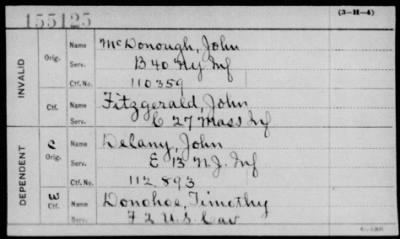 155125 (3-H-4)
INVALID
Orig. Name McDonough, John
Serv. B 40 Ny Inf
Ctf. No. 110359
Ctf. Name Fitzgerald, John
Serv. C 27 Mass Inf
DEPENDENT
C Orig. Name Delany, John
Serv. E 13 N.J. Inf
Ctf. No. 112,893
W Ctf. Name Donohoe, Timothy
Serv. F 2 U.S. Cav